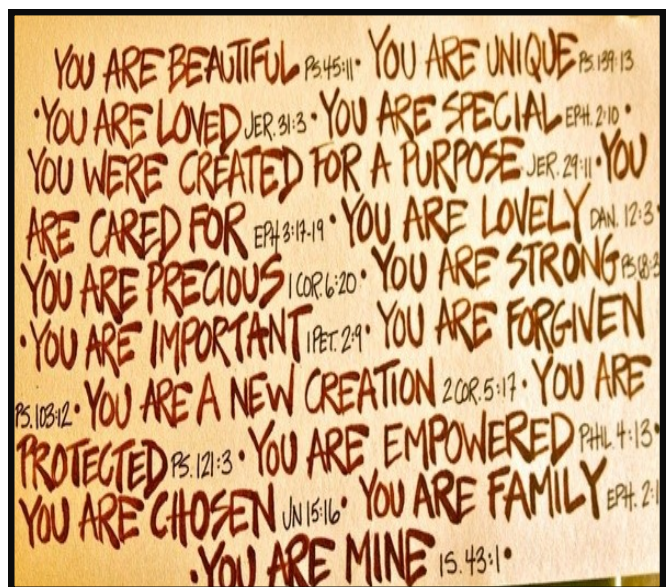 YOU ARE BEAUTIFUL PS.45:11 • YOU ARE UNIQUE PS.139:13
• YOU ARE LOVED JER. 31:3 • YOU ARE SPECIAL EPH. 2:10 •
YOU WERE CREATED FOR A PURPOSE JER. 29:11 • YOU
ARE CARED FOR EPH 3:17-19 • YOU ARE LOVELY DAN. 12:3 •
YOU ARE PRECIOUS 1 COR. 6:20 • YOU ARE STRONG
• YOU ARE IMPORTANT 1 PET. 2:9 • YOU ARE FORGIVEN
PS. 103:12 • YOU ARE A NEW CREATION 2 COR. 5:17 • YOU ARE
PROTECTED PS. 121:3 • YOU ARE EMPOWERED PHIL. 4:13 •
YOU ARE CHOSEN JN 15:16 • YOU ARE FAMILY EPH.
• YOU ARE MINE IS. 43:1 •